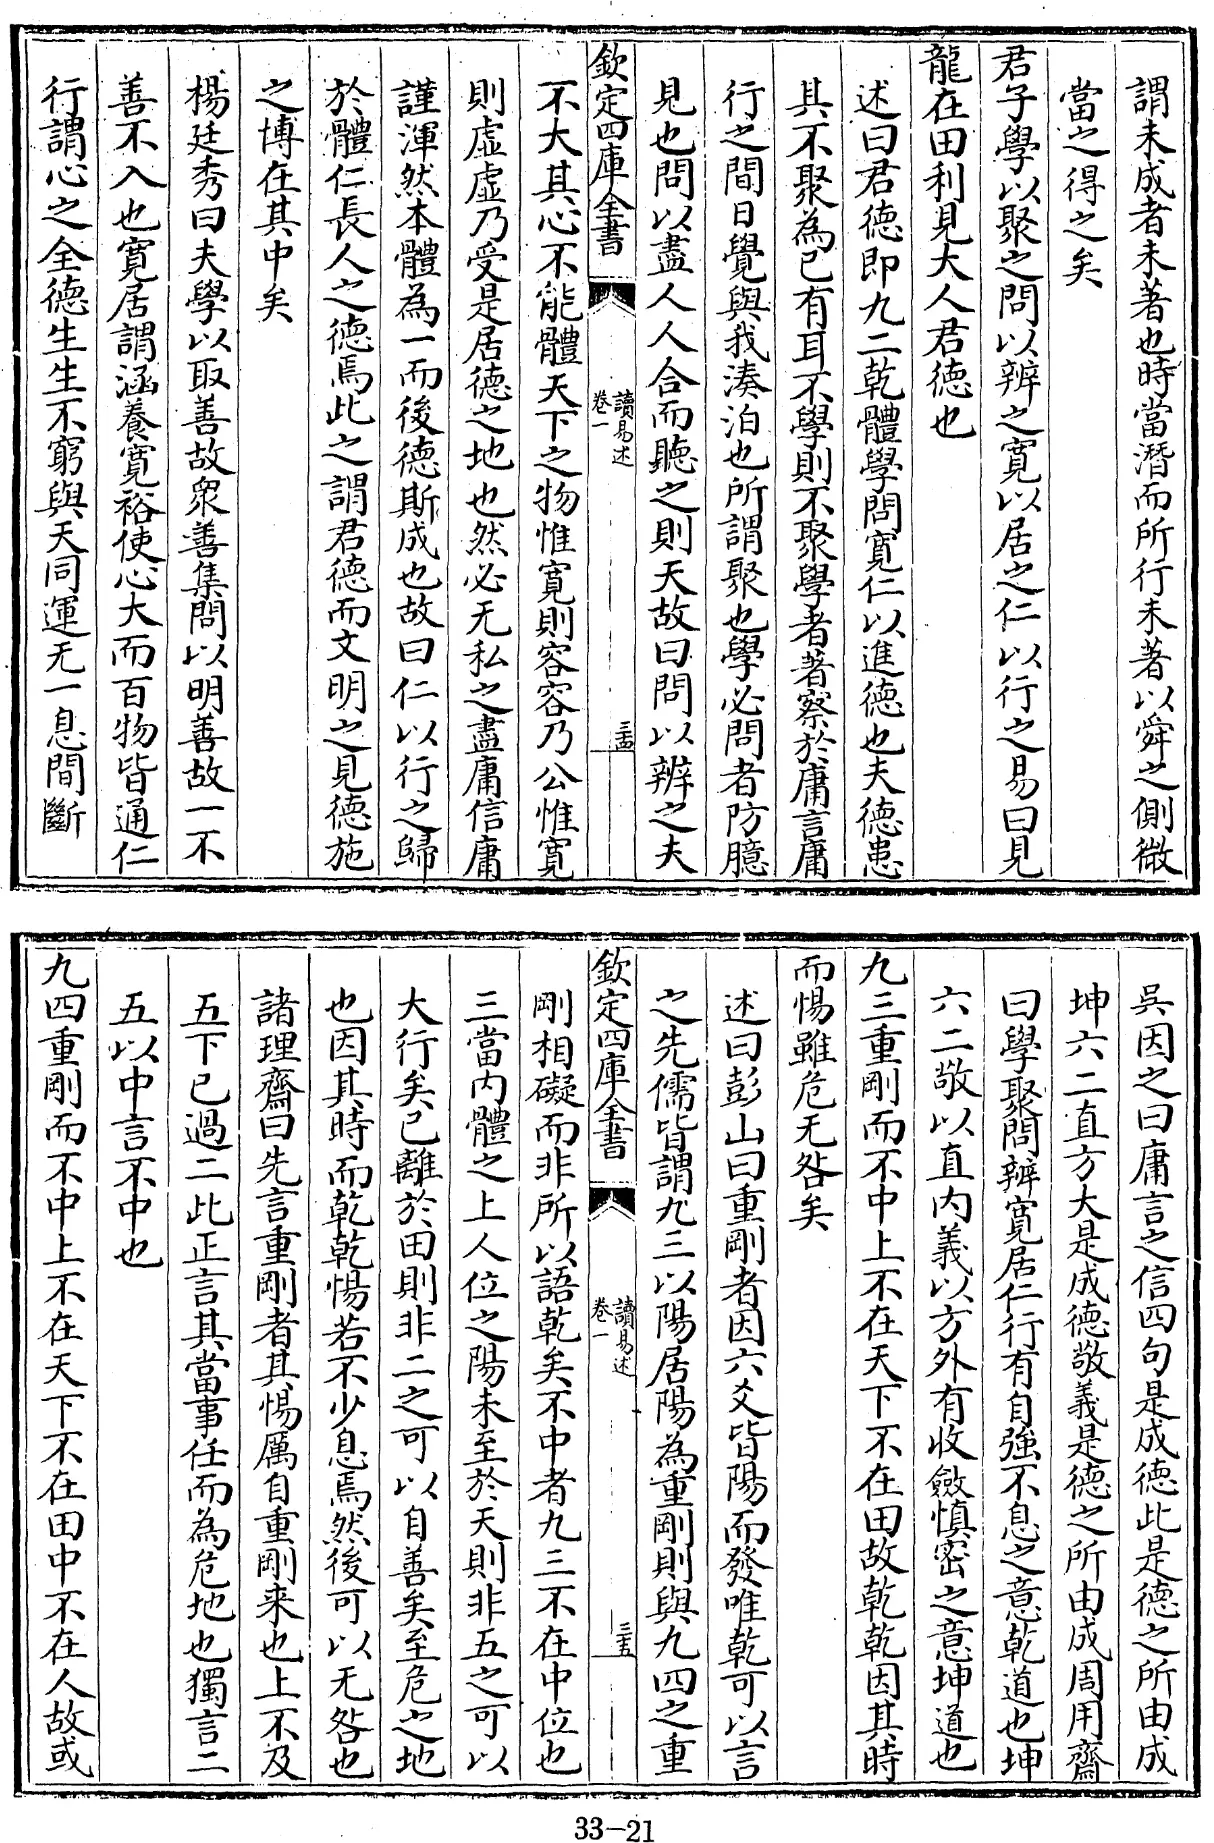 謂未成者未著也時當潛而所行未著以舜之側微
當之得之矣
君子學以聚之問以辨之寛以居之仁以行之易曰見
龍在田利見大人君德也
述曰君德即九二乾體學問寛仁以進德也夫德患
其不聚為已有耳不學則不聚學者著察於庸言庸
行之間日覺與我湊泊也所謂聚也學必問者防臆
見也問以盡人人合而聽之則天故曰問以辨之夫
欽定四庫全書
讀易述
卷一
三十四
不大其心不能體天下之物惟寛則容容乃公惟寛
則虛虛乃受是居德之地也然必无私之盡庸信庸
謹渾然本體為一而後德斯成也故曰仁以行之歸
於體仁長人之德焉此之謂君德而文明之見德施
之博在其中矣
楊廷秀曰夫學以取善故衆善集問以明善故一不
善不入也寛居謂涵養寛裕使心大而百物皆通仁
行謂心之全德生生不窮與天同運无一息間斷
吳因之曰庸言之信四句是成德此是德之所由成
坤六二直方大是成德敬義是德之所由成周用齋
曰學聚問辨寛居仁行有自強不息之意乾道也坤
六二敬以直内義以方外有收斂慎密之意坤道也
九三重剛而不中上不在天下不在田故乾乾因其時
而惕雖危无咎矣
述曰彭山曰重剛者因六爻皆陽而發唯乾可以言
之先儒皆謂九三以陽居陽為重剛則與九四之重
欽定四庫全書
讀易述
卷一
三十五
剛相礙而非所以語乾矣不中者九三不在中位也
三當内體之上人位之陽未至於天則非五之可以
大行矣已離於田則非二之可以自善矣至危之地
也因其時而乾乾惕若不少息焉然後可以无咎也
諸理齋曰先言重剛者其惕厲自重剛来也上不及
五下已過二此正言其當事任而為危地也獨言二
五以中言不中也
九四重剛而不中上不在天下不在田中不在人故或
33-21